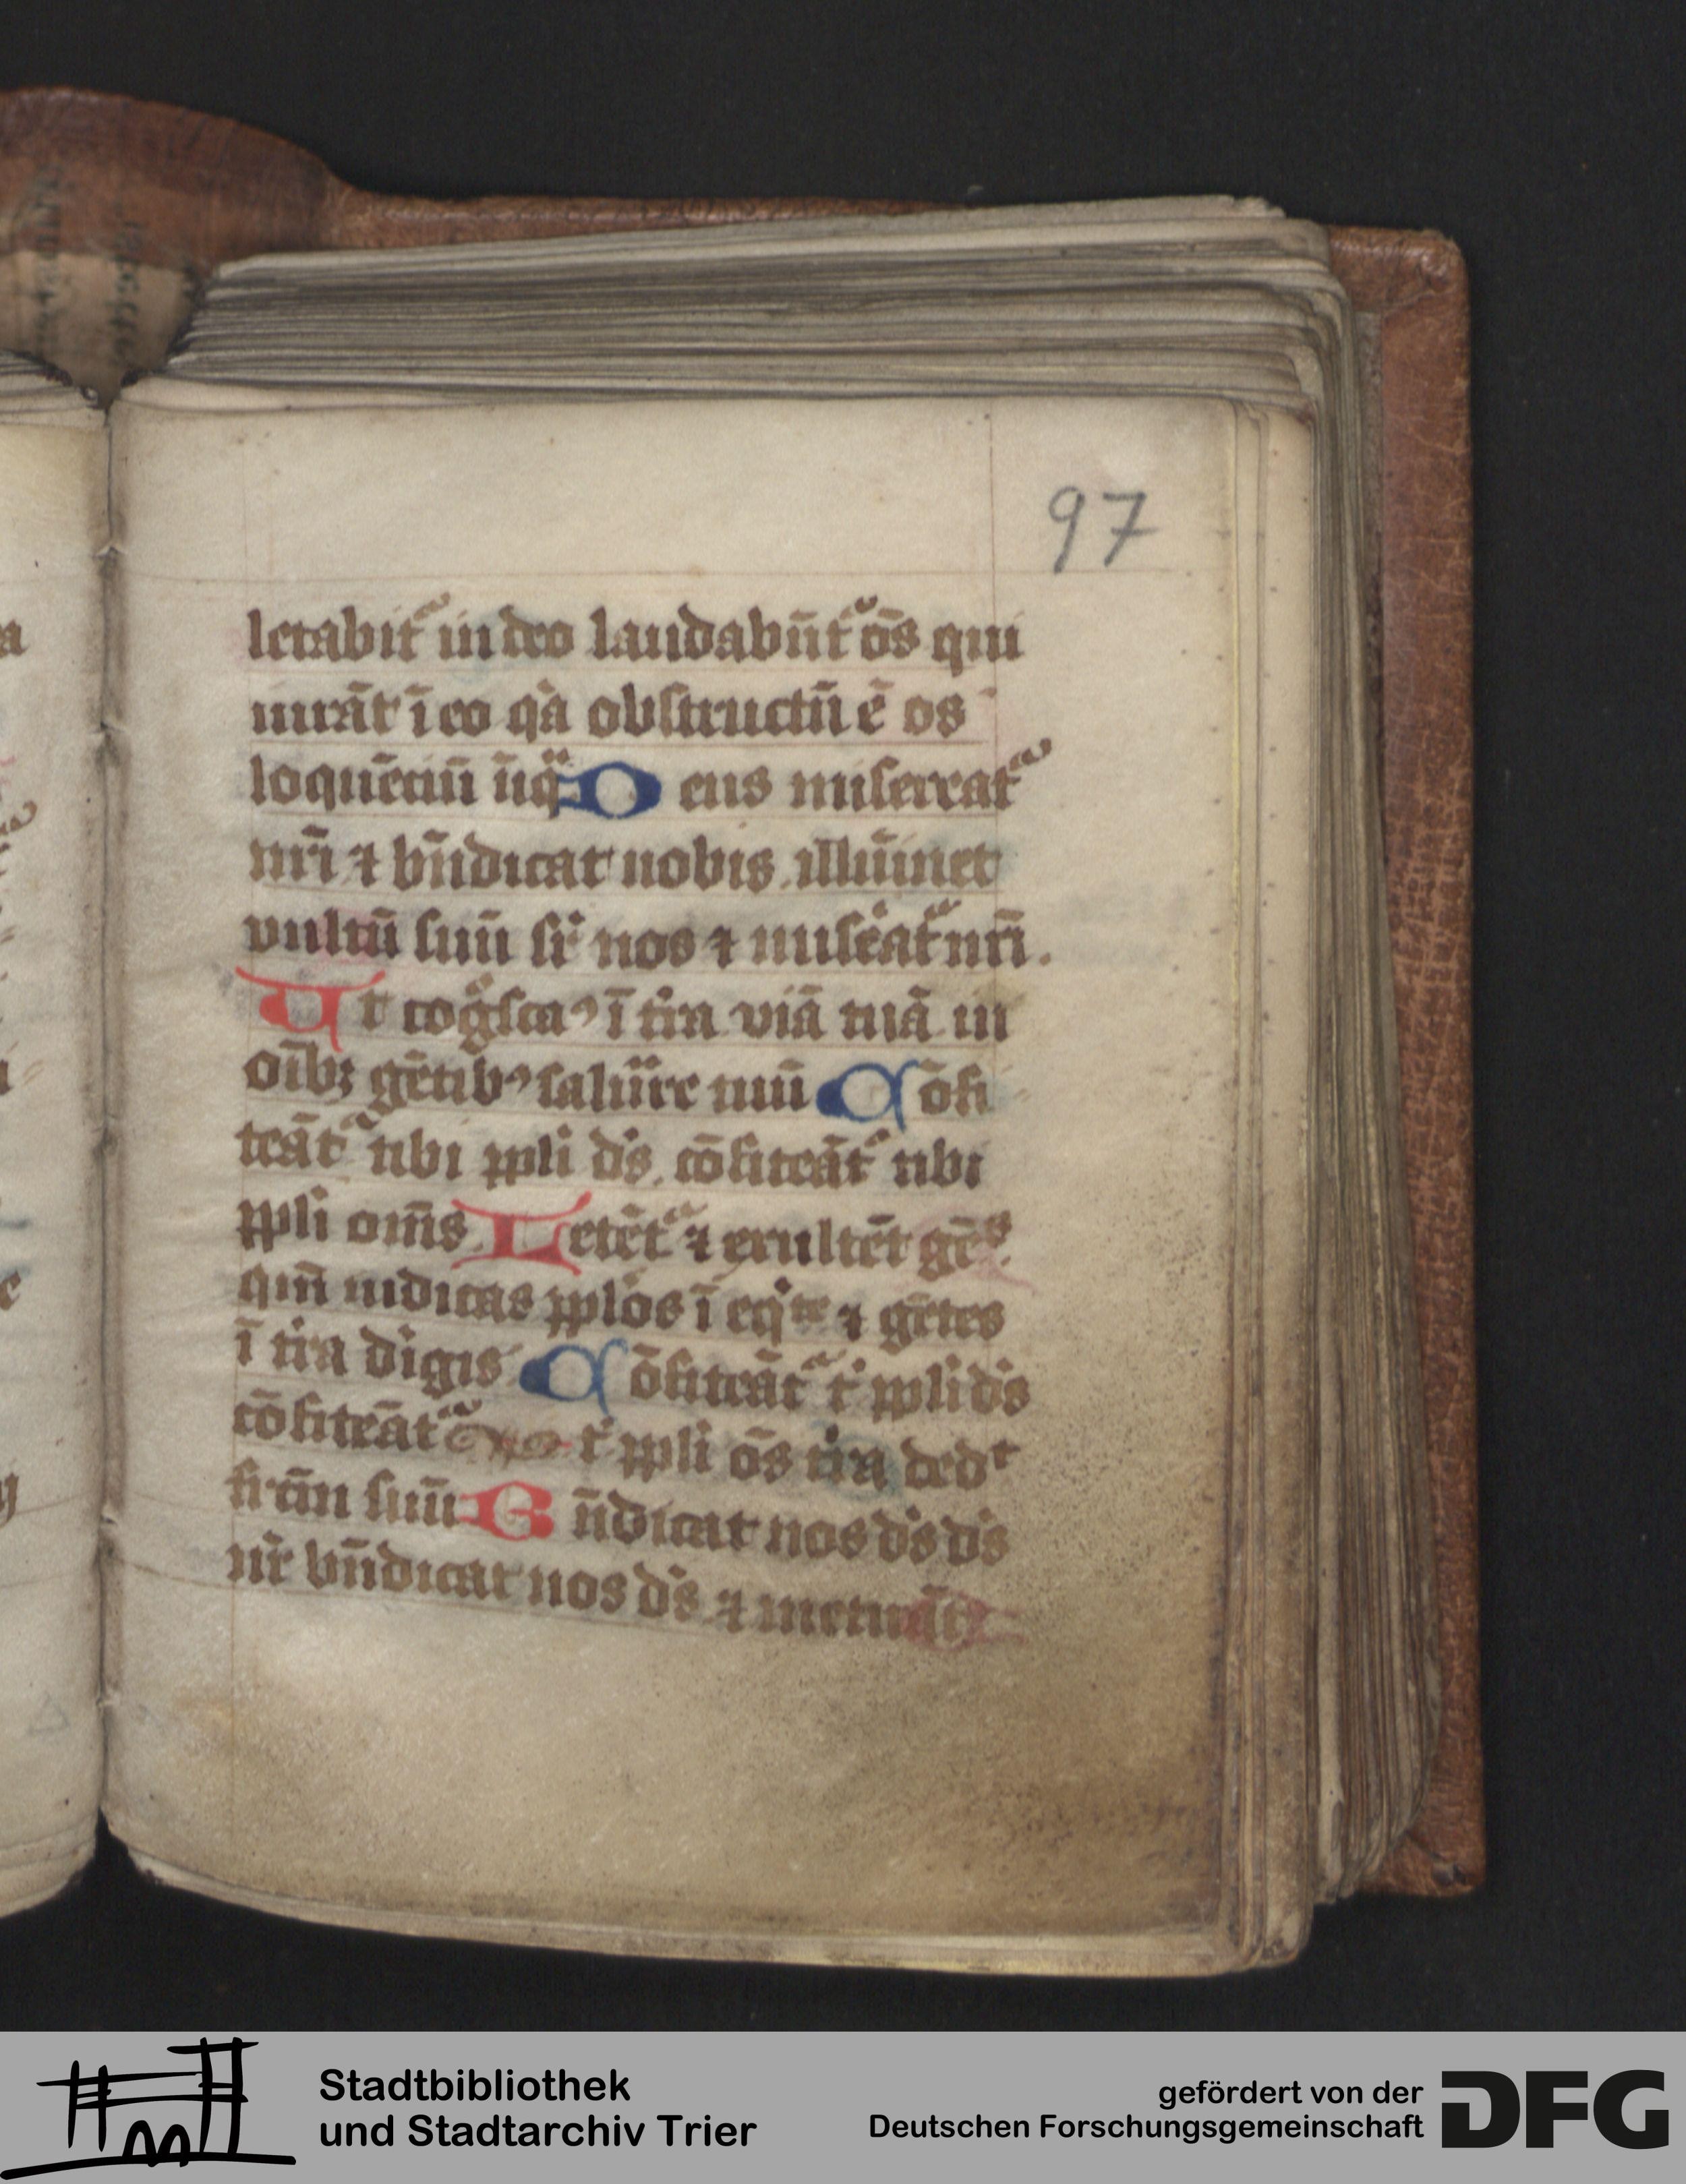 97
letabit᷑ in deo laudabūt᷑ ōs qui
iurāt ī eo qͥa obstructū ē os
loquēciū iiqͣ Deus misereat᷑
nr̄i ⁊ bn̄dicat nobis illūinet
vultū suū sr̄ nos ⁊ miseat᷑ nr̄i.
Ut cogͦsca⁹ ī tͥra viā tuā in
oībꝫ gētib⁹ salu̇re tuū Cōfi
teāt᷑ tibi ppli dſ̄ cōfiteāt᷑ tibi
ppli oms̄ Letēt᷑ ⁊ exultēt gēˢ
qm̄ iudicas pplōs ī eqͥte ⁊ gētes
ī tͥra digis Cōfiteāt᷑ tͥ ppli ds̄
cōfiteāt᷑ tͥ ppli ōs tͥra dedͭ
frc̄m suū Bn̄dicat nos ds̄ ds̄
nr̄ bn̄dicat nos ds̄ ⁊ metuāt
Stadtbibliothek
und Stadtarchiv Trier
gefördert von der
Deutschen Forschungsgemeinschaft
DFG